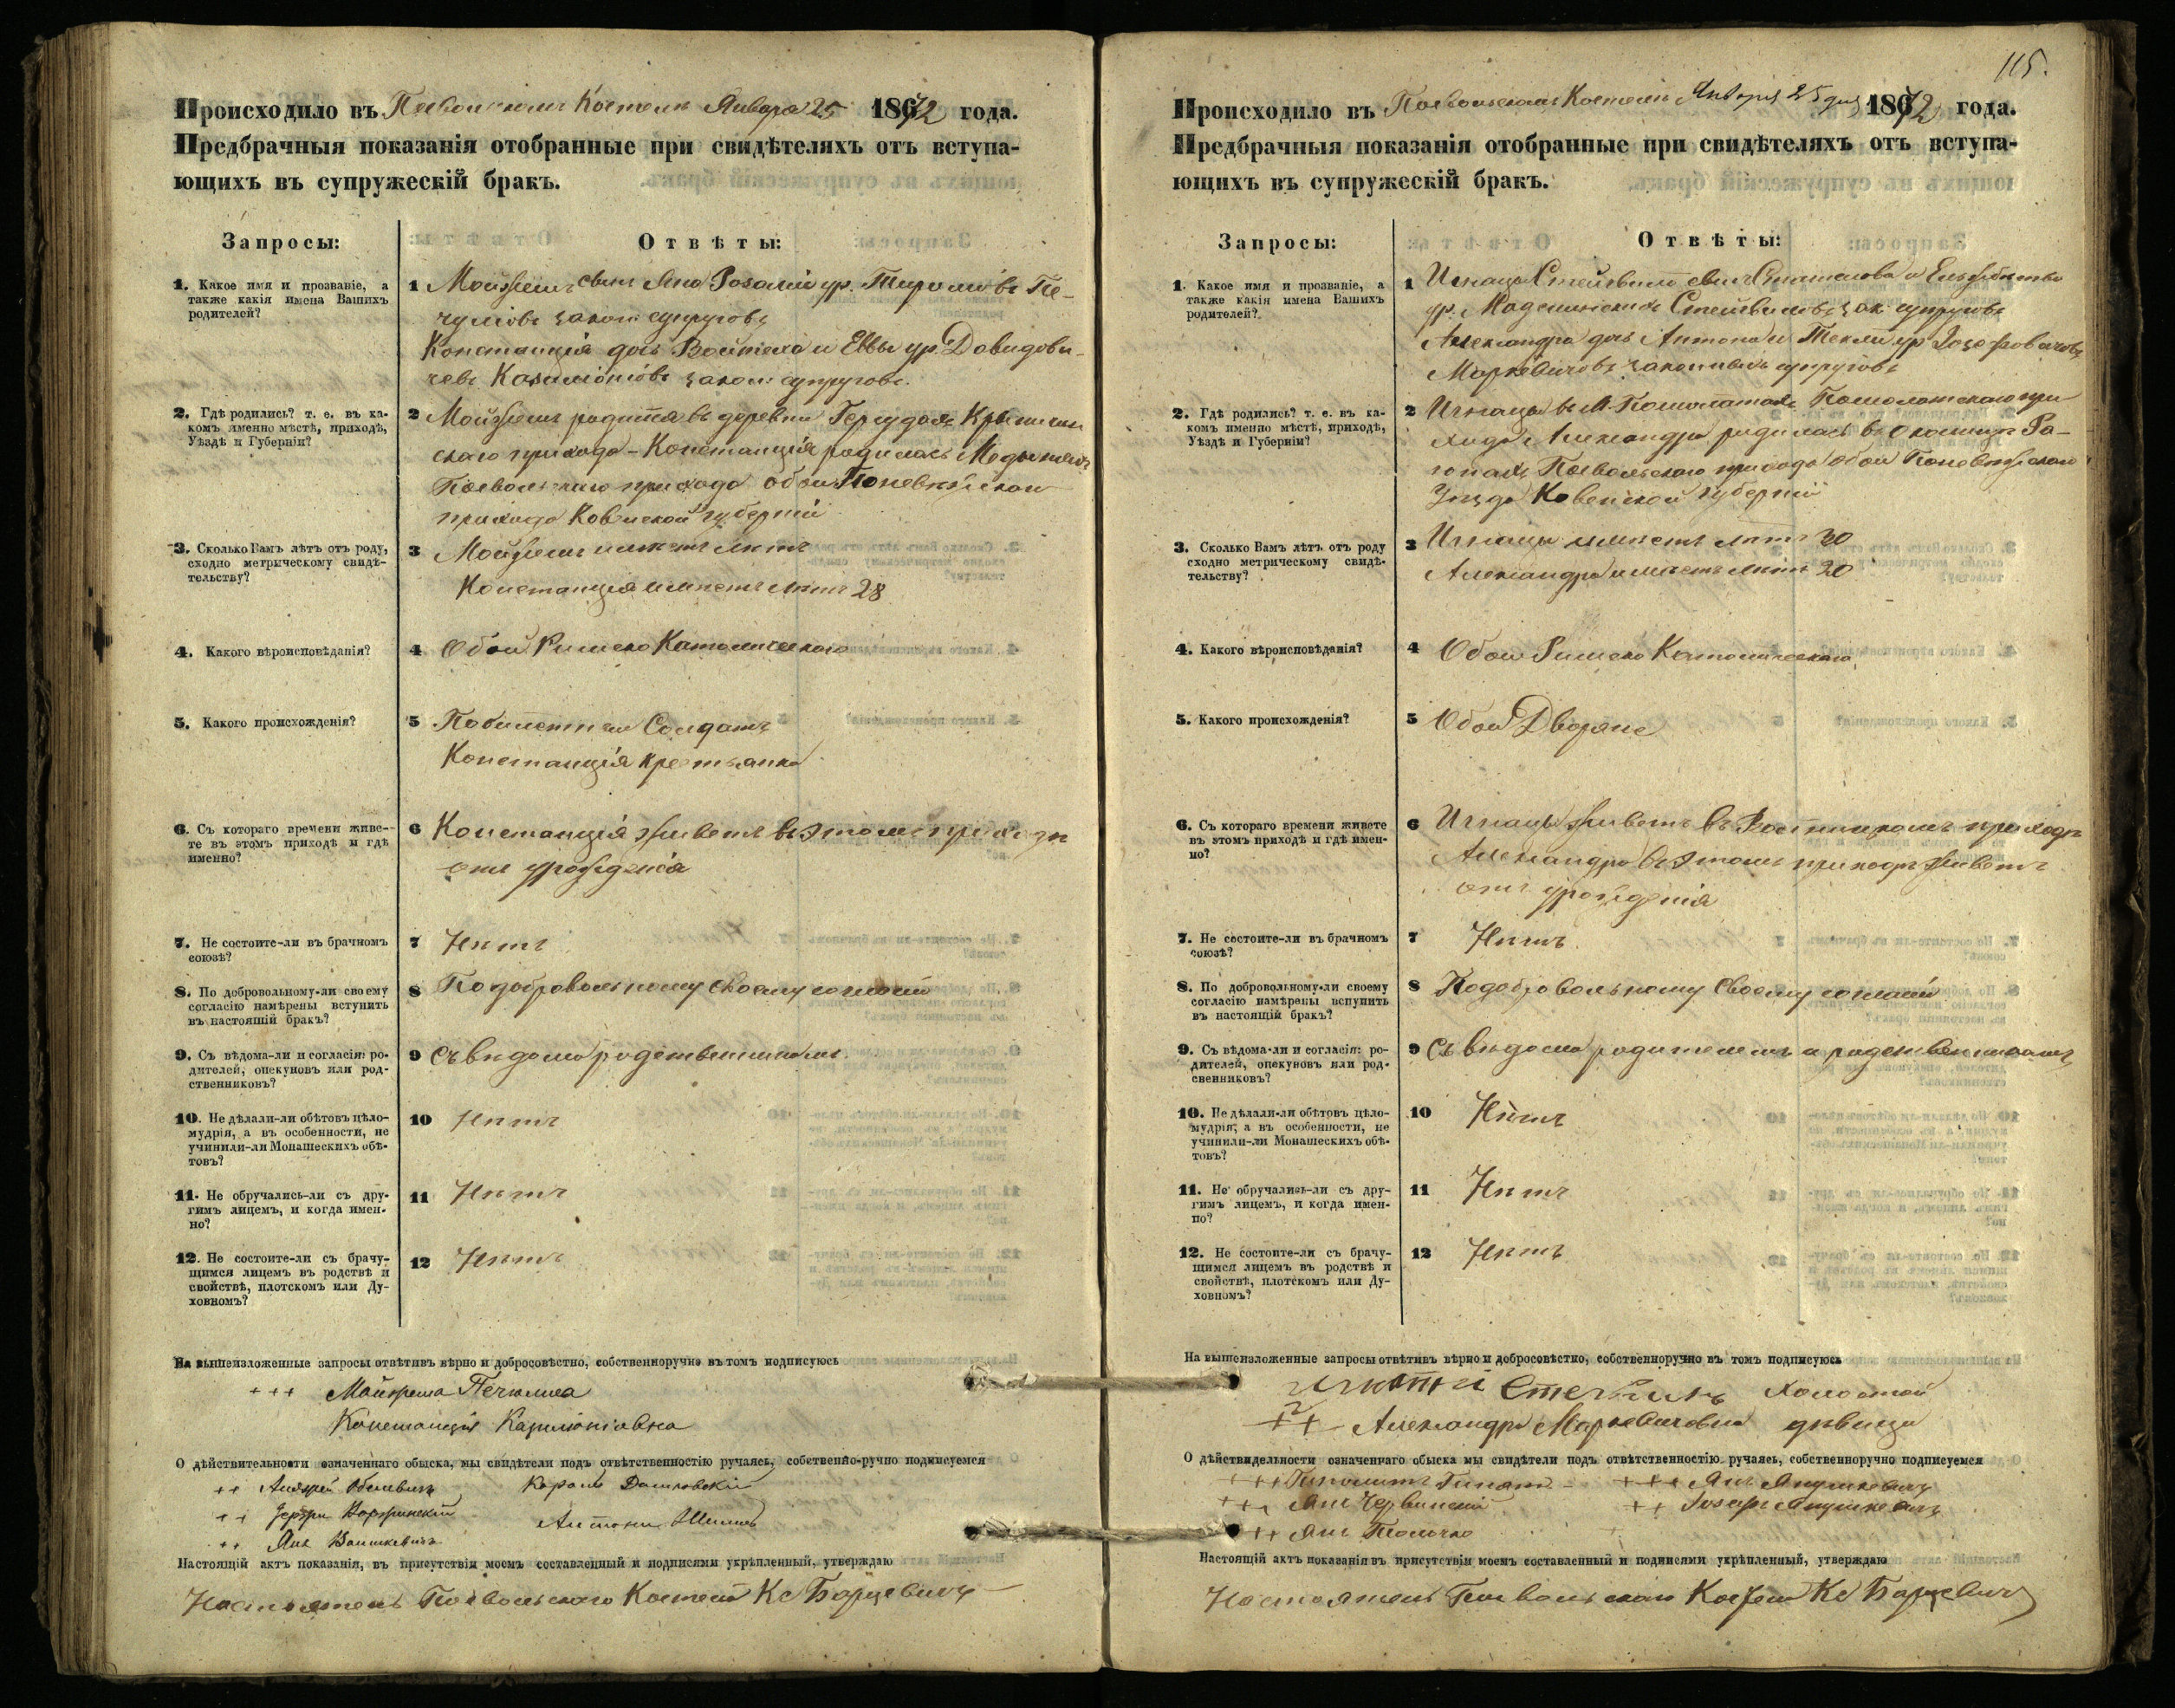 Происходило въ Поевольскомъ Костелѣ Января 25 1872 года.
Предбрачныя показанія отобранные при свидѣтеляхъ отъ вступа-
ющихъ въ супружескій бракъ.
Запросы:
Отвѣты:
1. Какое имя и прозваніе, а
также какія имена Вашихъ
родителей?
1 Мойжешъ сынъ Яна Розаліи ур.
законн супруговъ
Констанція дочь Войтеха и Еввы ур. Давидови-
чевъ законн супруговъ.
2. Гдѣ родились? т. е. въ ка-
комъ именно мѣстѣ, приходѣ,
Уѣздѣ и Губерніи?
2 Мойжешъ родился въ деревни
скаго прихода - Констанція родилась
Поевольскаго прихода обои Поневѣжскаго
прихода Ковенской губерніи
3. Сколько Вамъ лѣтъ отъ роду,
сходно метрическому свидѣ-
тельству?
3 Мойжешъ имѣетъ лѣтъ
Констанція имѣетъ лѣтъ 28
4. Какого вѣроисповѣданія?
4 Обои Римско Католическаго
5. Какого происхожденія?
5 Солдатъ
Констанція крестьянка
6. Съ котораго времени живе-
те въ этомъ приходѣ и гдѣ
именно?
6 Констанція живетъ въ этомъ приходѣ
отъ урожденія
7. Не состоите-ли въ брачномъ
союзѣ?
7 Нѣтъ
8. По добровольному-ли своему
согласію намѣрены вступить
въ настоящій бракъ?
8 По добровольному своему согласію
9. Съ вѣдома-ли и согласія: ро-
дителей, опекуновъ или род-
ственниковъ?
9 Съ вѣдома родственниковъ.
10. Не дѣлали-ли обѣтовъ цѣло-
мудрія, а въ особенности, не
учинили-ли Монашескихъ обѣ-
товъ?
10 Нѣтъ
11. Не обручались-ли съ дру-
гимъ лицемъ, и когда имен-
но?
11 Нѣтъ
12. Не состоите-ли съ брачу-
щимся лицемъ въ родствѣ и
свойствѣ, плотскомъ или Ду-
ховномъ?
12 Нѣтъ
На вышеизложенные запросы отвѣтивъ вѣрно и добросовѣстно, собственноручно въ томъ подписуюсь
+++ Мойжеша
Констанція
О дѣйствительности означеннаго обыска, мы свидѣтели подъ отвѣтственностію ручаясь, собственно-ручно подписуемся
++ Андрей Кароль
++ Антони
++ Янъ Вашкевичъ
Настоящій актъ показанія, въ присутствіи моемъ составленный и подписями укрѣпленный, утверждаю
Настоятель Поевольскаго Костела Кс Барцевичъ
115.
Происходило въ Поевольскомъ Костелѣ Января 25 дня 1872 года.
Предбрачныя показанія отобранные при свидѣтеляхъ отъ вступа-
ющихъ въ супружескій бракъ.
Запросы:
Отвѣты:
1. Какое имя и прозваніе, а
также какія имена Вашихъ
родителей?
1 Игнацы сынъ и Ельжбеты
ур. зак. супруговъ
Александра дочь Антона и Текли ур Іозефовичовъ
Маркевичовъ законныхъ супруговъ
2. Гдѣ родились? т. е. въ ка-
комъ именно мѣстѣ, приходѣ,
Уѣздѣ и Губерніи?
2 Игнацы въ при
хода Александра родилась въ околицѣ
Поевольскаго прихода обои Поневѣжскаго
Уѣзда Ковенской губерніи
3. Сколько Вамъ лѣтъ отъ роду
сходно метрическому свидѣ-
тельству?
3 Игнацы имѣетъ лѣтъ 30
Александра имѣетъ лѣтъ 20
4. Какого вѣроисповѣданія?
4 Обои Римско Католическаго
5. Какого происхожденія?
5 Обои Дворяне
6. Съ котораго времени живете
въ этомъ приходѣ и гдѣ имен-
но?
6 Игнацы живетъ въ приходѣ
Александра въ этомъ приходѣ живетъ
отъ урожденія
7. Не состоите-ли въ брачномъ
союзѣ?
7 Нѣтъ.
8. По добровольному-ли своему
согласію намѣрены вспупить
въ настоящій бракъ?
8 По добровольному своему согласію
9. Съ вѣдома-ли и согласія: ро-
дителей, опекуновъ или род-
свенниковъ?
9 Съ вѣдома родителемъ и родственникамъ
10. Не дѣлали-ли обѣтовъ цѣло-
мудрія, а въ особенности, не
учинили-ли Монашескихъ обѣ-
товъ?
10 Нѣтъ
11. Не обручались-ли съ дру-
гимъ лицемъ, и когда имен-
но?
11 Нѣтъ
12. Не состоите-ли съ брачу-
щимся лицемъ въ родствѣ и
свойствѣ, плотскомъ или Ду-
ховномъ?
12 Нѣтъ
На вышеизложенные запросы отвѣтивъ вѣрно и добросовѣстно, собственноручно въ томъ подписуюсь
холостой
++ Александра Маркевичовна дѣвица
О дѣйствидельности означеннаго обыска мы свидѣтели подъ отвѣтственностію ручаясь, собственноручно подписуемся
+++ +++ Янъ Янушкевичъ
+++ Янъ Червинскій ++ Іозефъ Янушкевичъ
+++ Янъ
Настоящій актъ показанія въ присутствіи моемъ составленный и подписями укрѣпленный, утверждаю
Настоятель Поевольскаго Костела Кс Барцевичъ